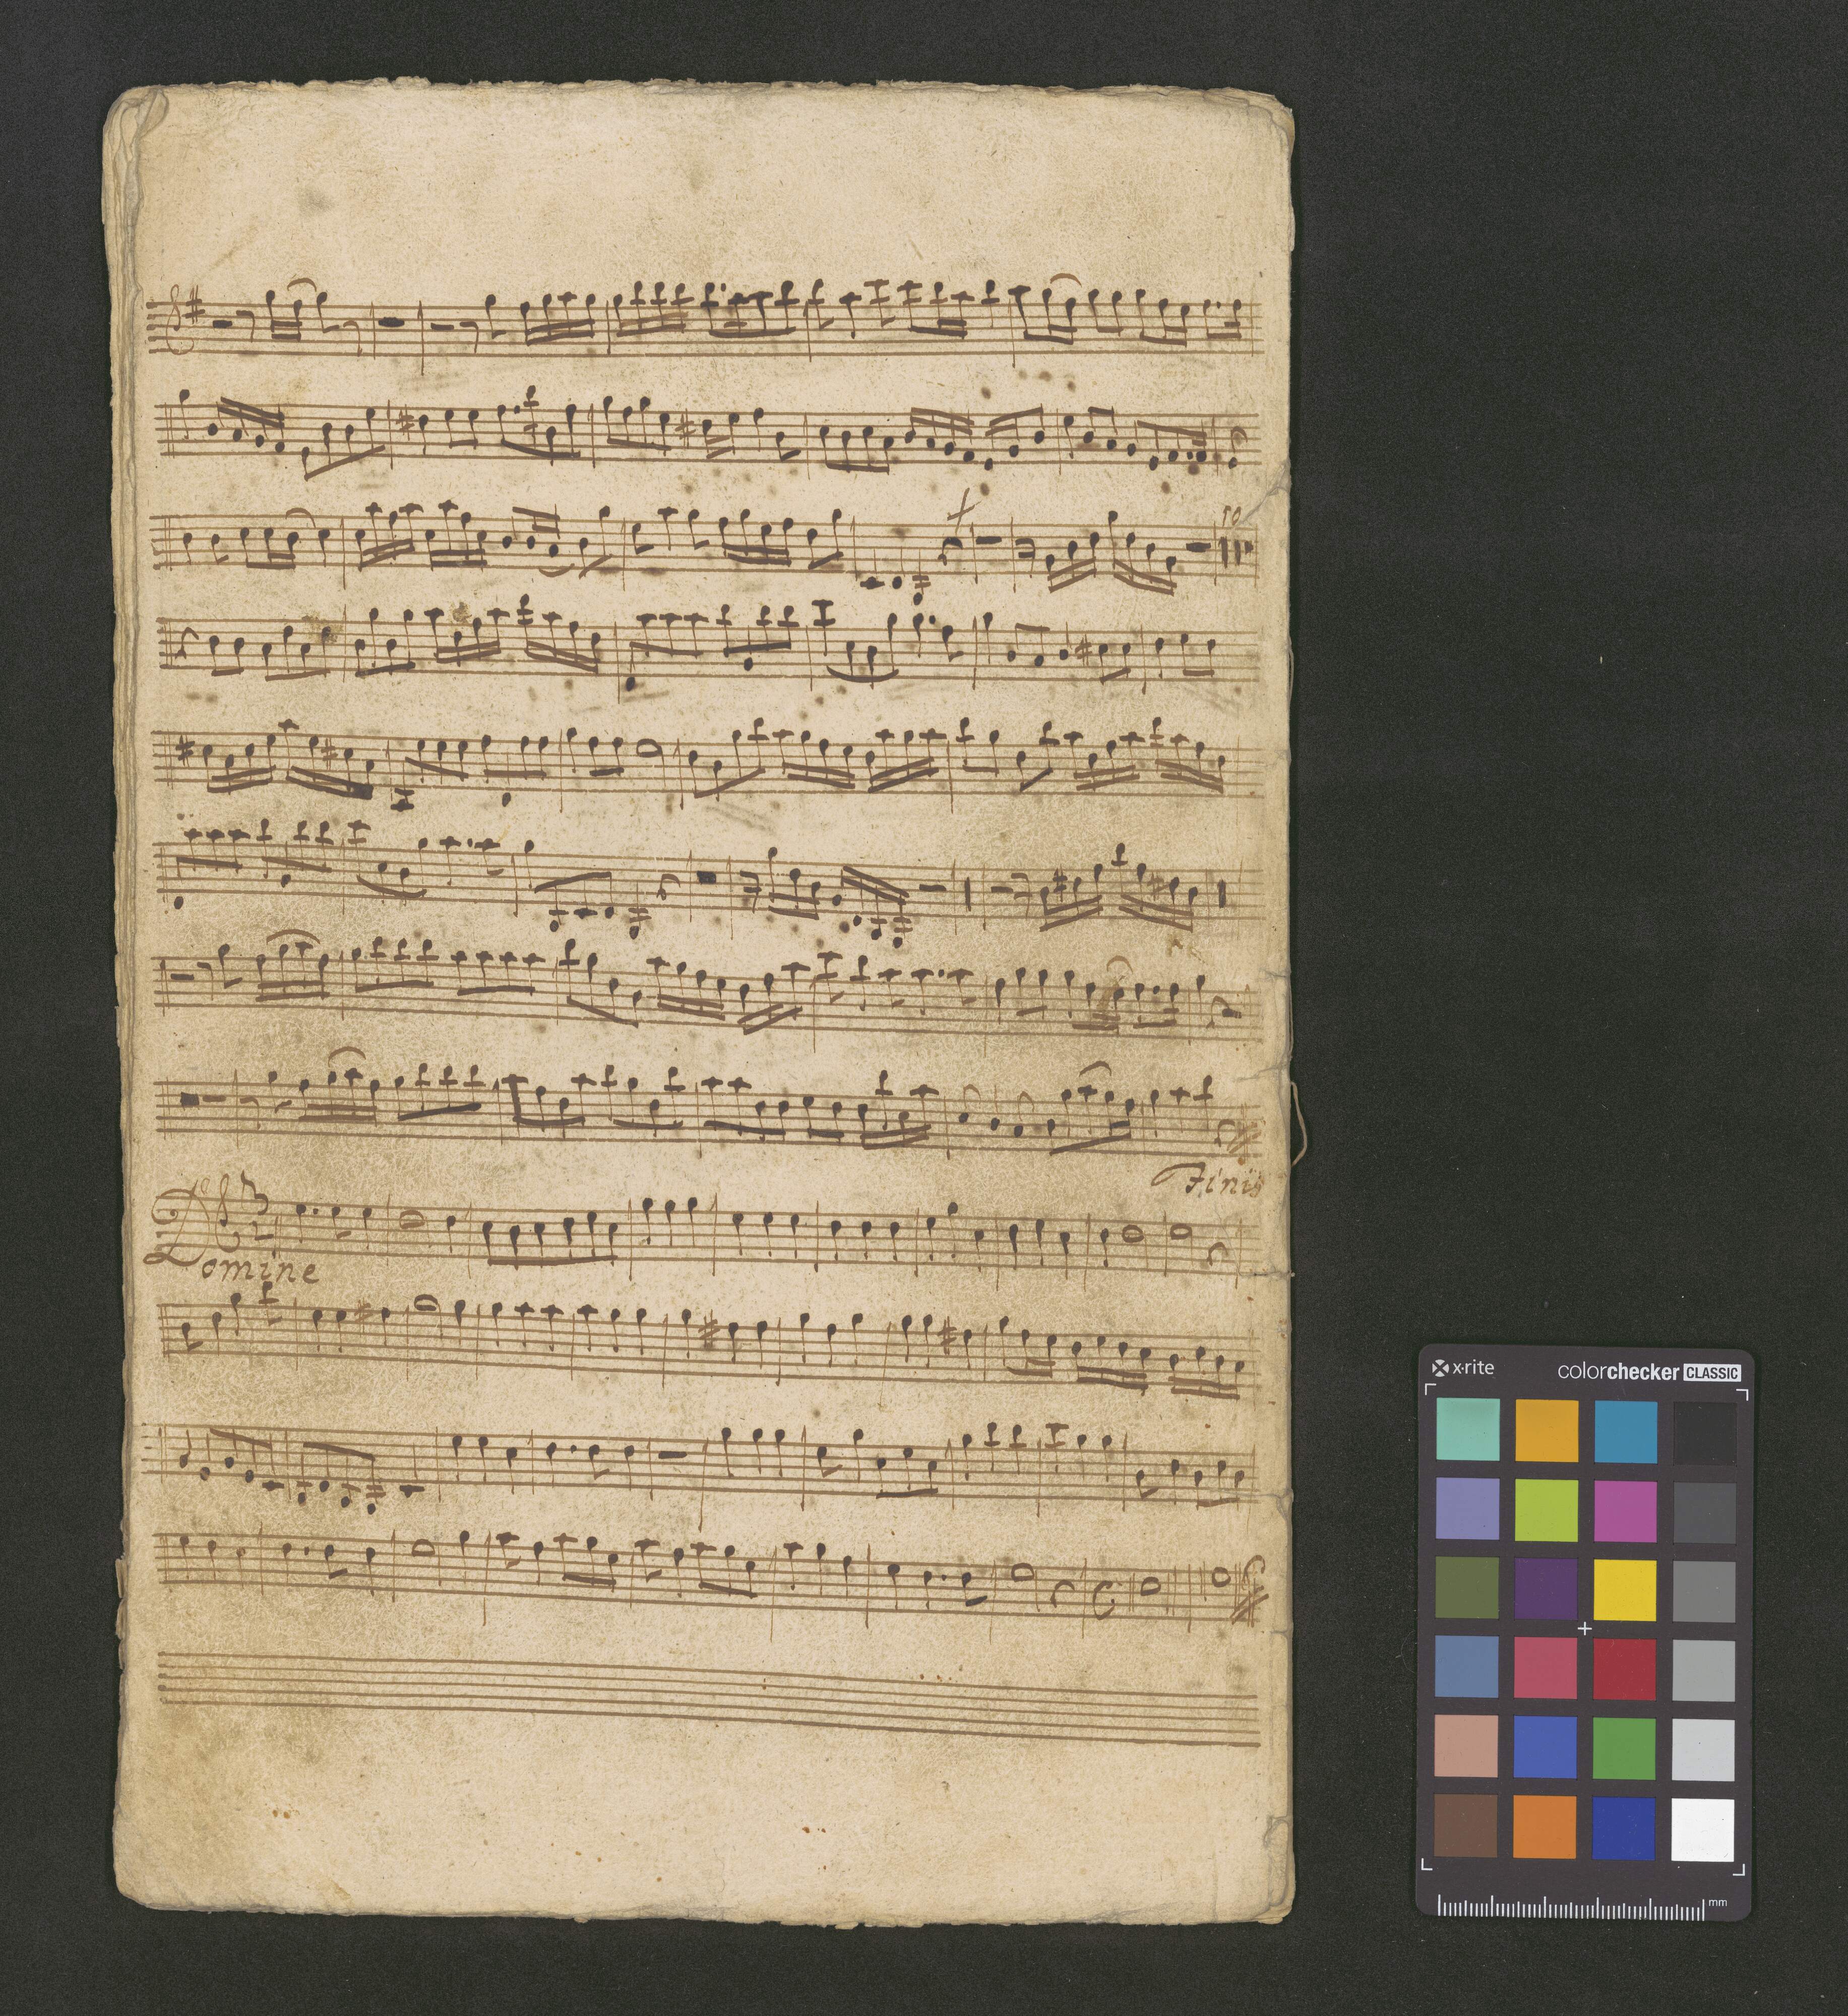 10
Finis
3
2
Domine
C
x-rite
colorchecker CLASSIC
mm